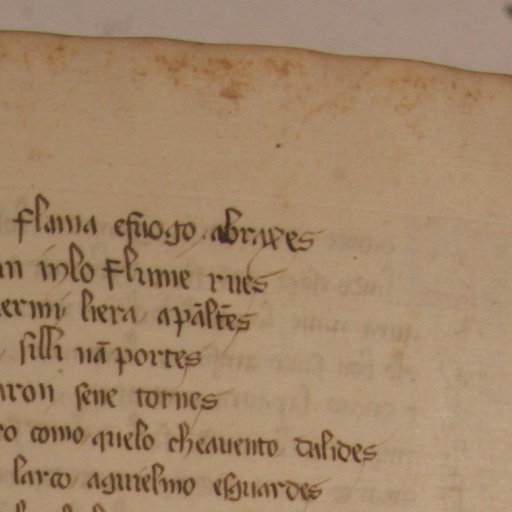 flama efuogo abraxes
in inlo flume rues
ermi liera apālt̄es
silli nā portes
aron sene tornes
ro como quelo cheauento dalides
larco aguielmo esguardes